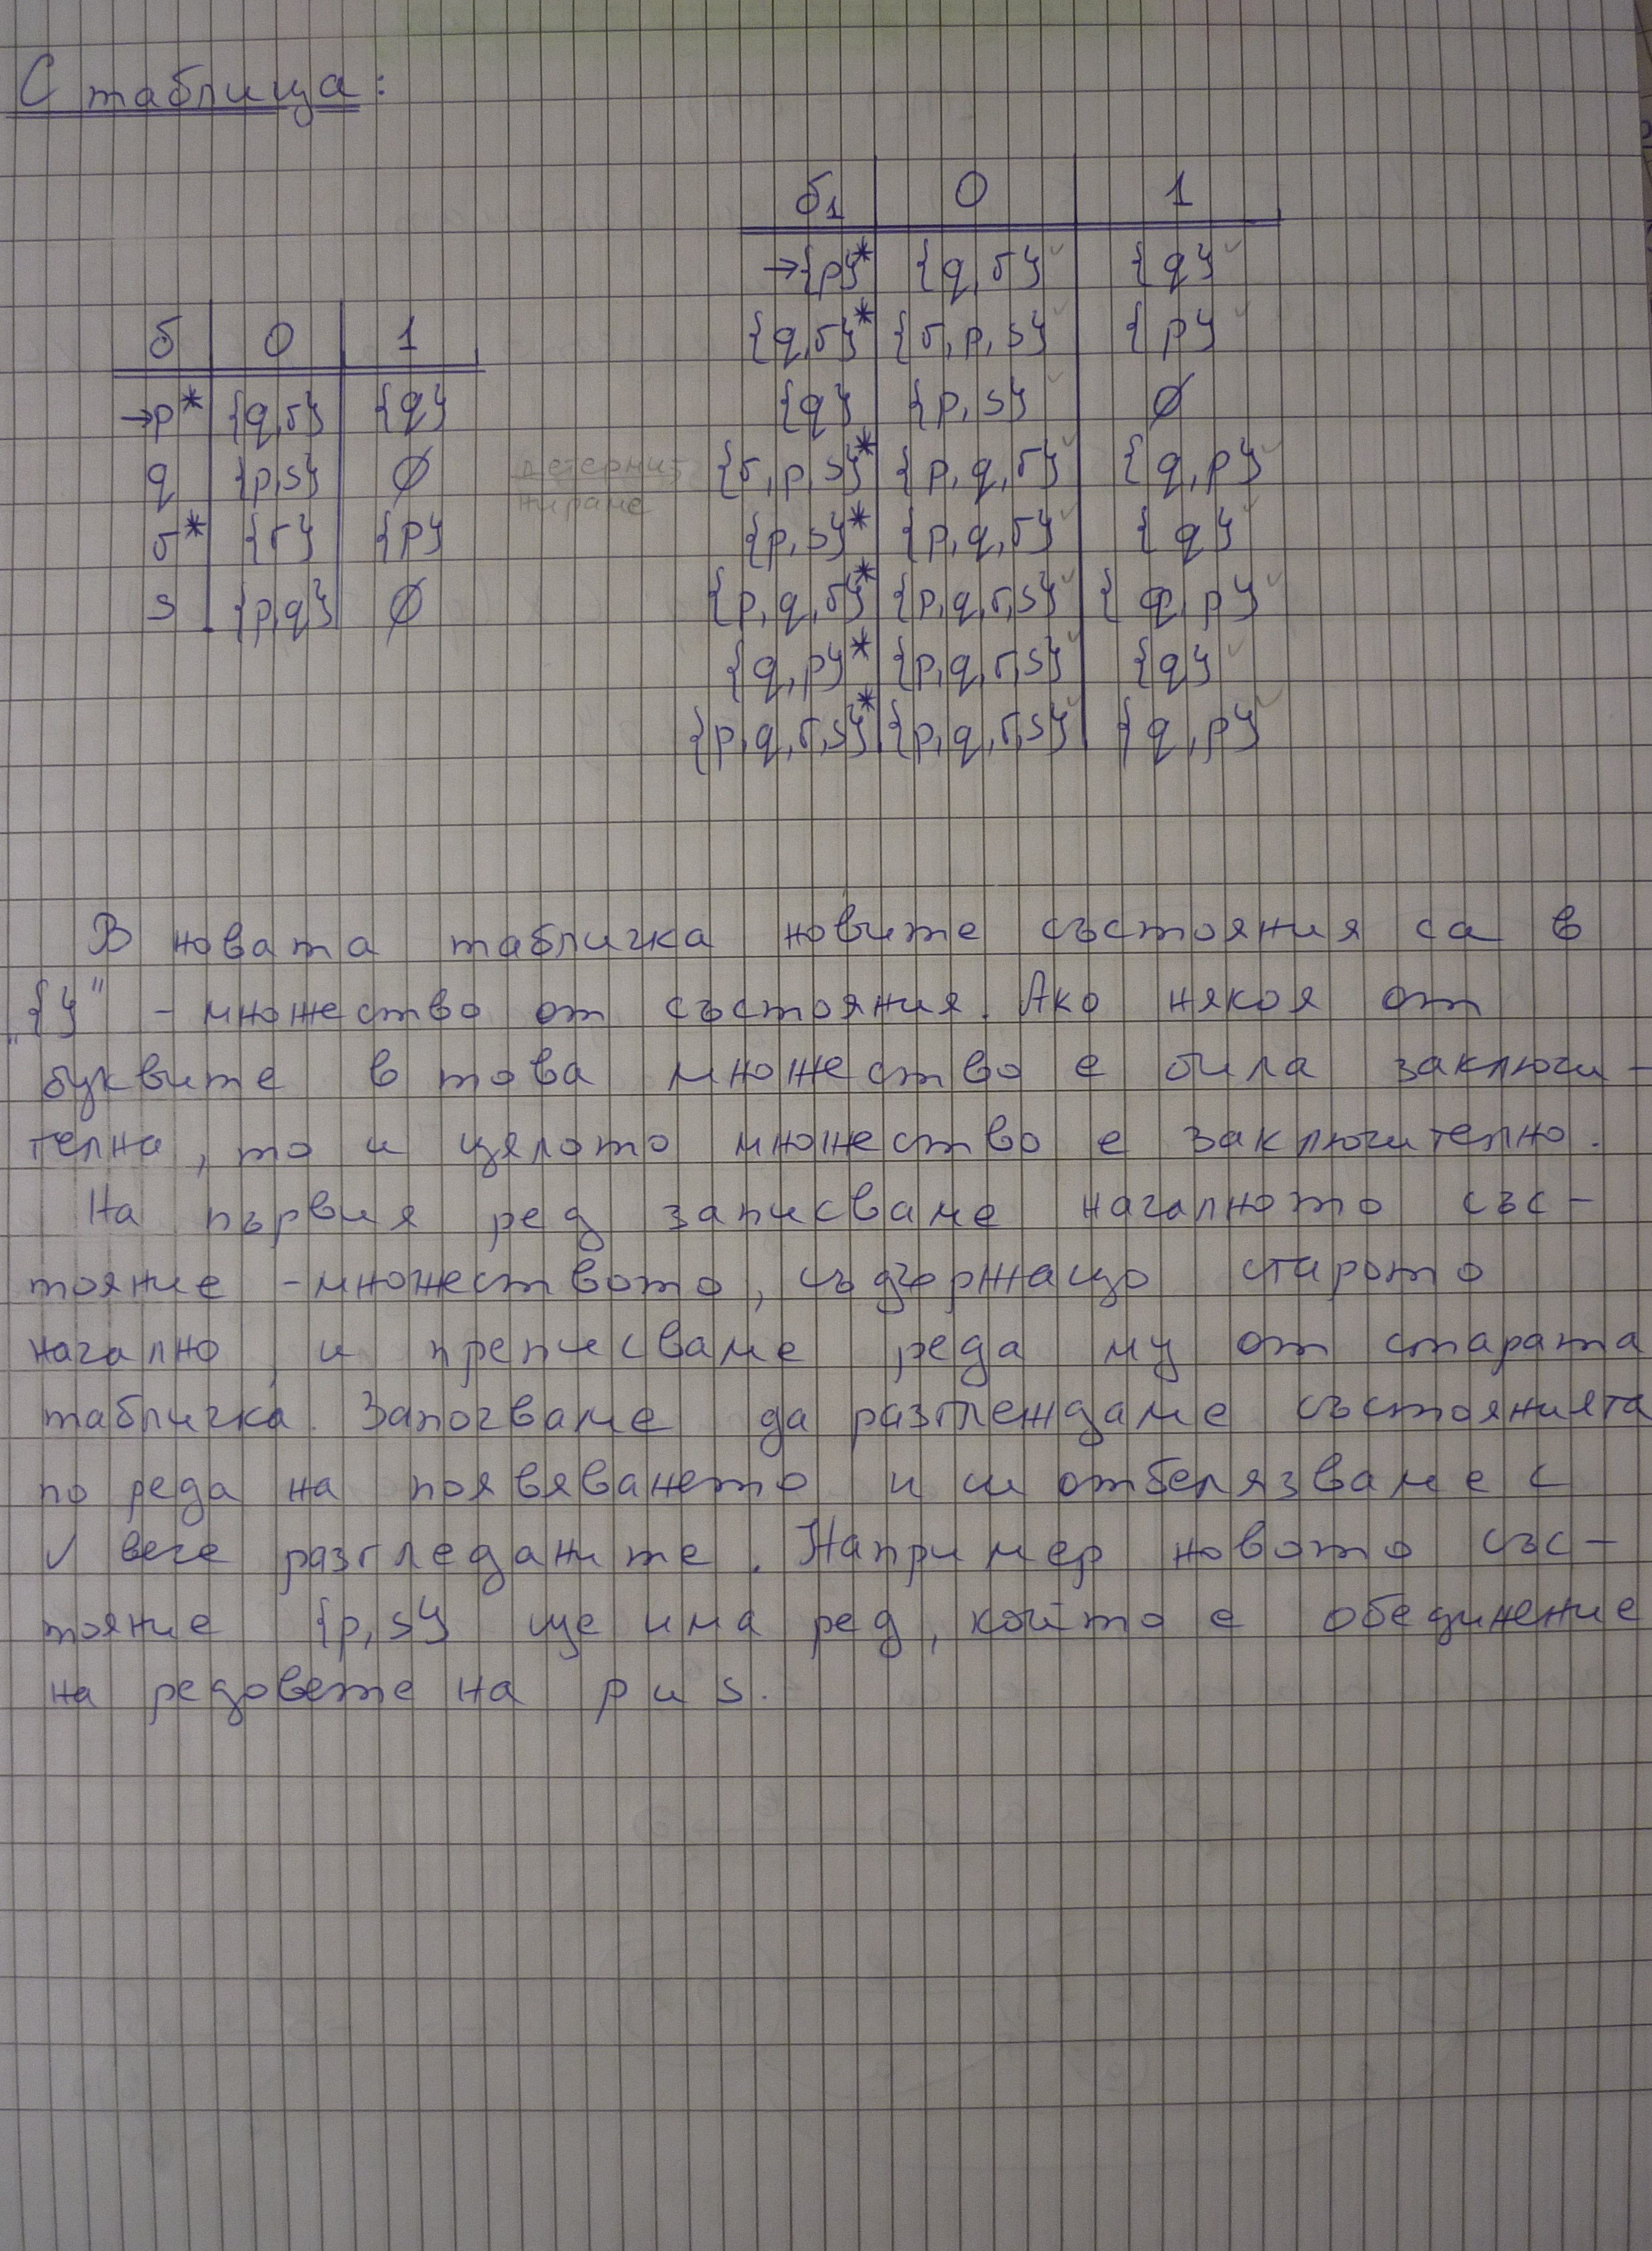 С таблица:
δ | 0 | 1
→p* | {q,r} | {q}
q | {p,s} | ∅
r* | {r} | {p}
s | {p,q} | ∅
детерми-
ниране
δ1 | 0 | 1
→{p}* | {q,r}✓ | {q}✓
{q,r}* | {r,p,s}✓ | {p}✓
{q} | {p,s}✓ | ∅
{r,p,s}* | {p,q,r}✓ | {q,p}✓
{p,s}* | {p,q,r}✓ | {q}✓
{p,q,r}* | {p,q,r,s}✓ | {q,p}✓
{q,p}* | {p,q,r,s}✓ | {q}✓
{p,q,r,s}* | {p,q,r,s}✓ | {q,p}✓
В новата табличка новите състояния са в
„{}" - множество от състояния. Ако някоя от
буквите в това множество е била заключи-
телна, то и цялото множество е заключително.
На първия ред записваме началното със-
тояние - множеството, съдържащо старото
начално, и преписваме реда му от старата
табличка. Започваме да разглеждаме състоянията
по реда на появяването и ги отбелязваме с
✓ вече разгледаните. Например новото със-
тояние {p,s} ще има ред, който е обединение
на редовете на p и s.